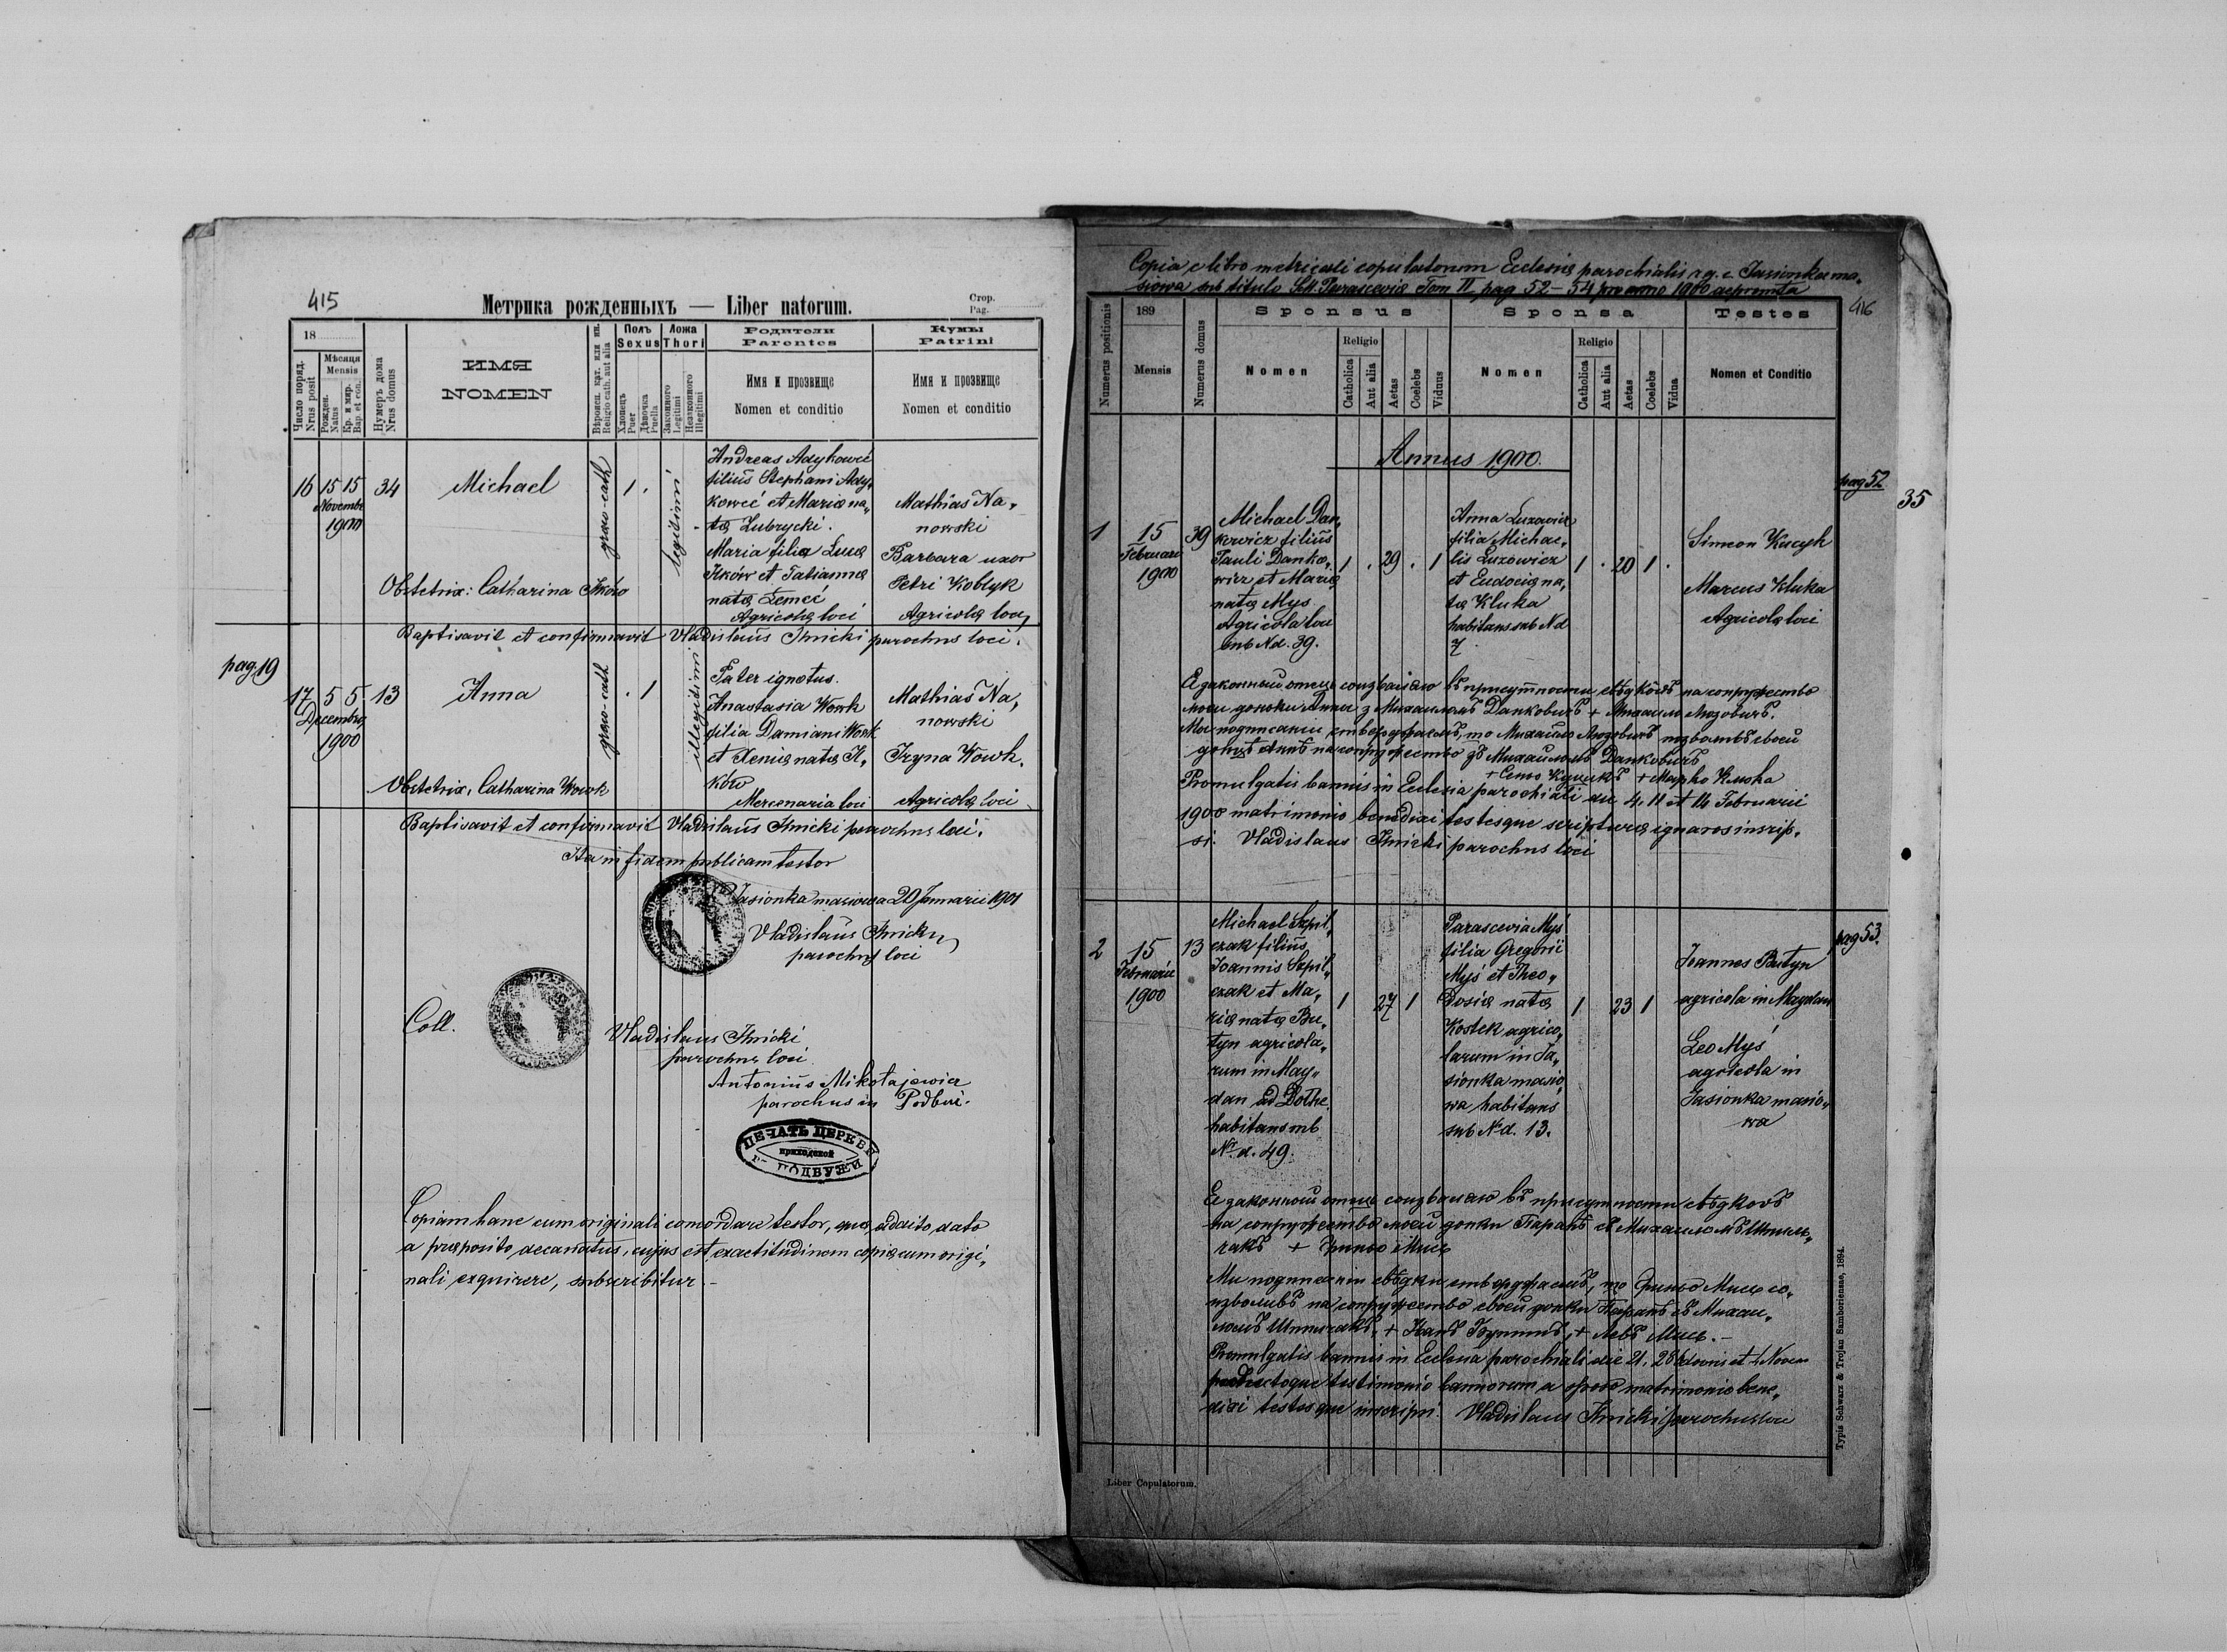 415
Метрика рожденныхъ — Liber natorum.
Стор.
Pag.
18
Число поряд.
Nrus posit
Мѣсяця
Mensis
Рожден.
Natus
Кр. и мир.
Bap. et con.
Нумеръ дома
Nrus domus
ИМЯ
NOMEN
Вѣроисп. кат. или ин.
Religio cath. aut alia
Полъ
Sexus
Хлопець
Puer
Дѣвочка
Puella
Ложа
Thori
Законного
Legitimi
Незаконного
Illegitimi
Родители
Parentes
Имя и прозвище
Nomen et conditio
Кумы
Patrini
Имя и прозвище
Nomen et conditio
16 15 15 34 Michael
Novembr
1900
graeco-cath
1 .
legitimi
Andreas Adykowcé
filius Stephani Ady„
kowcé et Mariæ na„
tæ Zubrycki.
Maria filia Lucæ
Ilków et Tatiannæ
natæ Łemeć
Agricolæ loci
Mathias Na„
nowski
Barbara uxor
Petri Koblyk
Agricolæ loci
Obstetrix: Catharina Ilków
Baptisavit et confirmavit Vladislaus Ilnicki parochus loci.
pag 19
17 5 5 13 Anna
Decembris
1900
graeco-cath
. 1
illegitimi
Pater ignotus.
Anastasia Wowk
filia Damiani Wowk
et Xeniæ natæ Il„
ków
Mercenaria loci
Mathias Na„
nowski
Iryna Wowk.
Agricolæ loci
Obstetrix, Catharina Wowk
Baptisavit et confirmavit Vladislaus Ilnicki parochus loci.
Ita in fidem publicam testor
Jasionka masiowa 20 Januarii 1901
Vladislaus Ilnicki
parochus loci
Coll.
Vladislaus Ilnicki
parochus loci
Antonius Mikołajewicz
parochus in Podbuż.
ПЕЧАТЬ ЦЕРКВИ
приходской
ПОДБУЖИ
Copiam hanc cum originali concordare testor, qua, addito, dato
a præposito decanatus, cujus est exactitudinem copiæ cum origi„
nali exquirere, subscribitur.—
Copia e libro metricali copulatorum Ecclesiæ parochialis r. g. c. Jasionka ma„
siowa sub titulo Sctt. Parasceviæ Tom II pag 52 – 54 pro anno 1900 deprompta
416
Numerus positionis
189
Mensis
Numerus domus
Sponsus
Nomen
Religio
Catholica
Aut alia
Aetas
Coelebs
Viduus
Sponsa
Nomen
Religio
Catholica
Aut alia
Aetas
Coelebs
Vidua
Testes
Nomen et Conditio
Annus 1900.
pag 52
35
1 15 39
Februarii
1900
Michael Dan„
kowicz filius
Pauli Danko„
wicz et Mariæ
natæ Mys
Agricola loci
sub Nd. 39.
1 . 29 . 1
Anna Luzowicz
filia Michae„
lis Luzowicz
et Eudociæ na„
tæ Kluka
habitans sub Nd
7.
1 . 20 1 .
Simeon Kucyk
Marcus Kluka
Agricolæ loci
Я законный отець соизваляю въ присутности свѣдковъ на сопружество
моеи доньки Анны з Михаиломъ Данковичъ + Михаилъ Люзовичъ.
Мы подписании стверджаемъ, то Михаилъ Люзовичъ позваляетъ своеи
на сопружество зъ Михаиломъ Данковичъ
+ Сенко Куцикъ + Марко Клюка
Promulgatis bannis in Ecclesia parochiali die 4, 11 et 14 Februarii
1900 matrimonio benedixi testesque scripturæ ignaros inscrip„
si. Vladislaus Ilnicki parochus loci
pag 53.
2 15 13
Februarii
1900
Michael Szpil„
czak filius
Joannis Szpil„
czak et Ma„
riæ natæ Bu„
tyn agricola„
rum in May„
dan ad Dołhe
habitans sub
Nr. d. 49.
1 27 1
Parascevia Myś
filia Gregorii
Myś et Theo„
dosiæ natæ
Kostek agrico„
larum in Ja„
sionka masio„
wa habitans
sub Nr d. 13.
1 23 1
Joannes Butyn
agricola in Maydan
Leo Myś
agricola in
Jasionka masio„
wa
Я законный отець соизваляю въ присутности свѣдковъ
на сопружество моеи доньки Паранѣ съ Михаиломъ Шпиль„
чакъ + Гринько Мись
Мы подписании свѣдки стверджаемъ, то Гринько Мись со„
изволивъ на сопружество своеи доньки Паранѣ съ Михаи„
ломъ Шпильчакъ, + Иванъ Бутинъ, + Левъ Мись.—
Promulgatis bannis in Ecclesia parochiali die 21, 28 Octobris et 1 Novem
productoque testimonio bannorum a matrimonio bene„
dixi testesque inscripsi. Vladislaus Ilnicki parochus loci
Liber Copulatorum.
Typis Schwarz & Trojan Samboriensae, 1894.